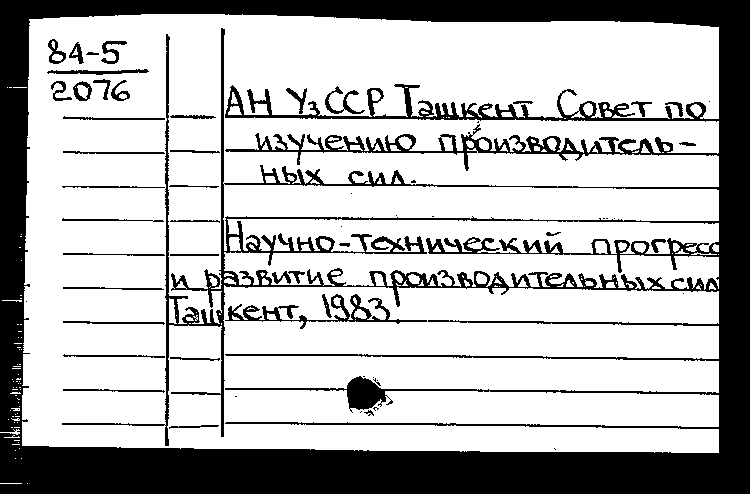 84-5
2076
АН УзССР Ташкент Совет по
изучению производитель-
ных сил.
Научно-технический прогресс
и развитие производительных сил
Ташкент, 1983.